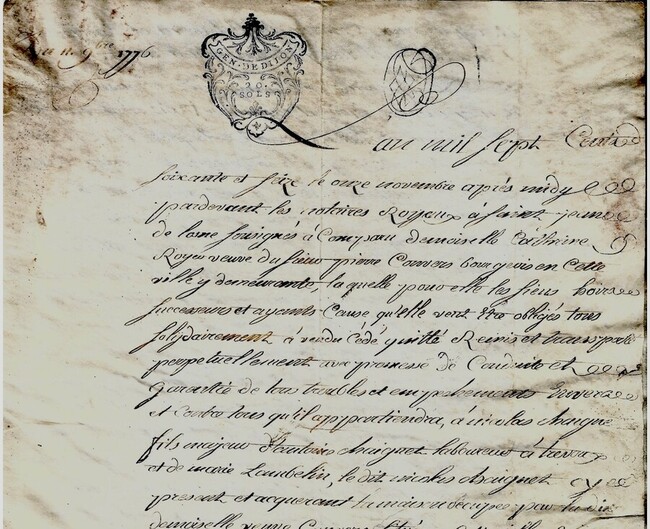 Du 11. 9bre 1776
GEN. DE DIJON
20.
SOLS
an mil sept Cents
soixante et seize le onze novembre après midy
pardevant les notaires Royaux à Saint jean
de losne sousignés à Comparu demoiselle Catherine
Royer veuve du sieur pierre Convers bourgeois en Cette
ville y demeurante, laquelle pour elle les siens hoirs
successeurs et ayants Cause qu'elle veut être obligés tous
solydairement à vendu Cédé quitté Remis et transporté
perpetuellement avec promesse de Conduite et
garantie de tous troubles et empechements envers
et Contre tous qu'il appartiendra, à nicolas
fils majeur d'antoine laboureur à
et de marie le dit nicolas
present et acquerant
demoiselle veuve Convers